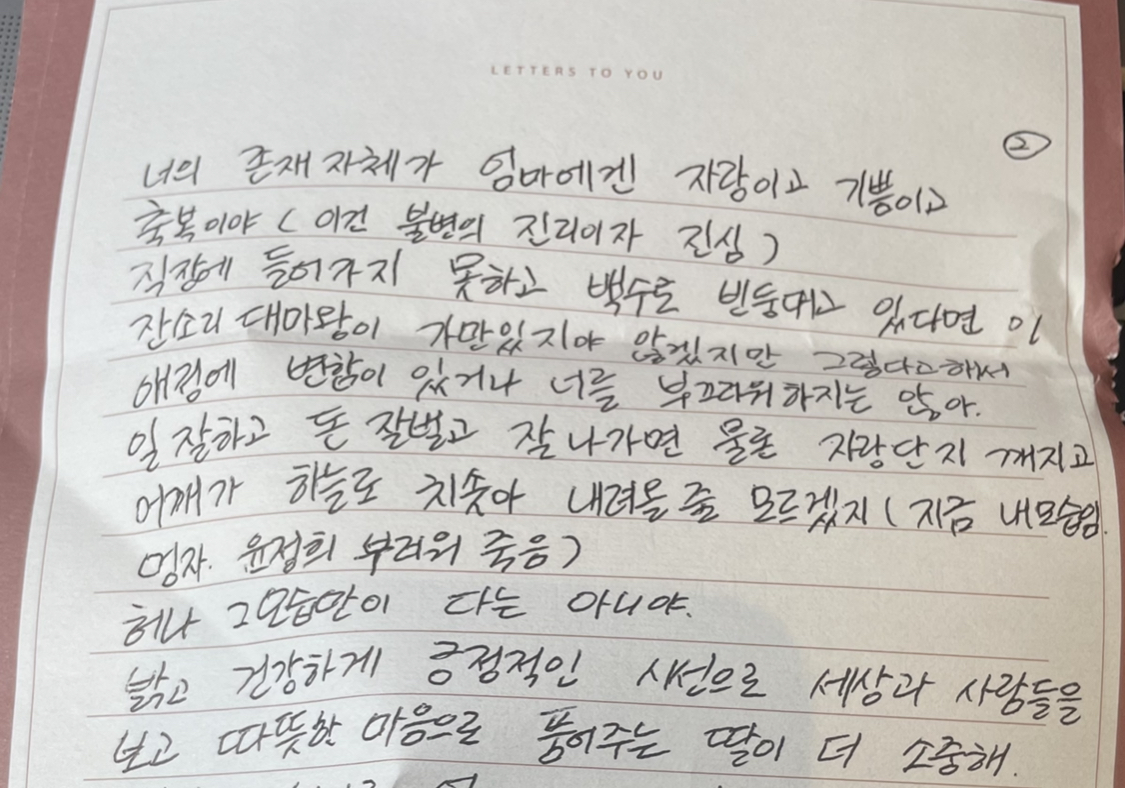 LETTERS TO YOU
②
너의 존재 자체가 엄마에겐 자랑이고 기쁨이고
축복이야 ( 이건 불변의 진리이자 진심 )
직장에 들어가지 못하고 백수로 빈둥대고 있다면 이
잔소리 대마왕이 가만있지야 않겠지만 그렇다고해서
애정에 변함이 있거나 너를 부끄라워하지는 않아.
일 잘하고 돈 잘벌고 잘 나가면 물론 자랑단지 깨지고
어깨가 하늘로 치솟아 내려올 줄 모르겠지 ( 지금 내모습임.
명자. 윤정희 부러워 죽음 )
허나 그모습만이 다는 아니야.
밝고 건강하게 긍정적인 시선으로 세상과 사람들을
보고 따뜻한 마음으로 품어주는 딸이 더 소중해.